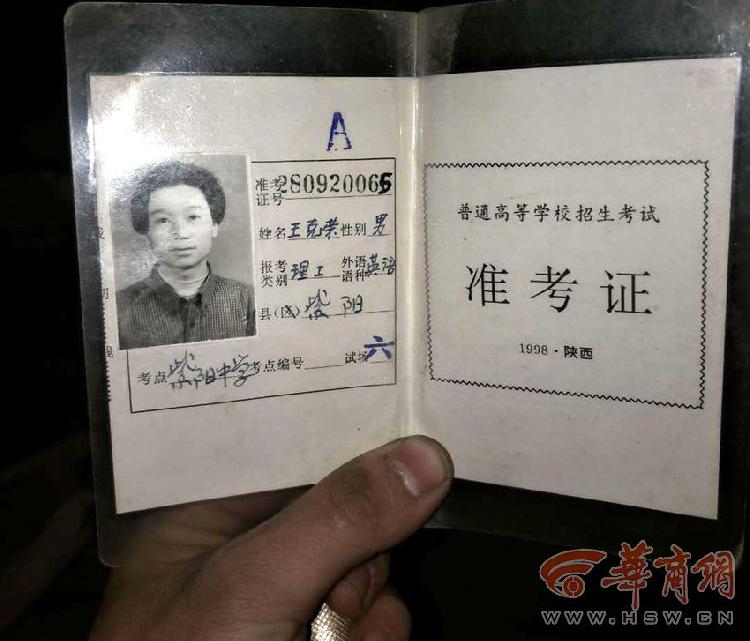 A
准考证号 280920065
姓名 王克荣 性别 男
报考类别 理工 外语语种 英语
县(区) 紫阳
考点 紫阳中学 考点编号 试场 六
普通高等学校招生考试
准考证
1998·陕西
华商网
WWW.HSW.CN